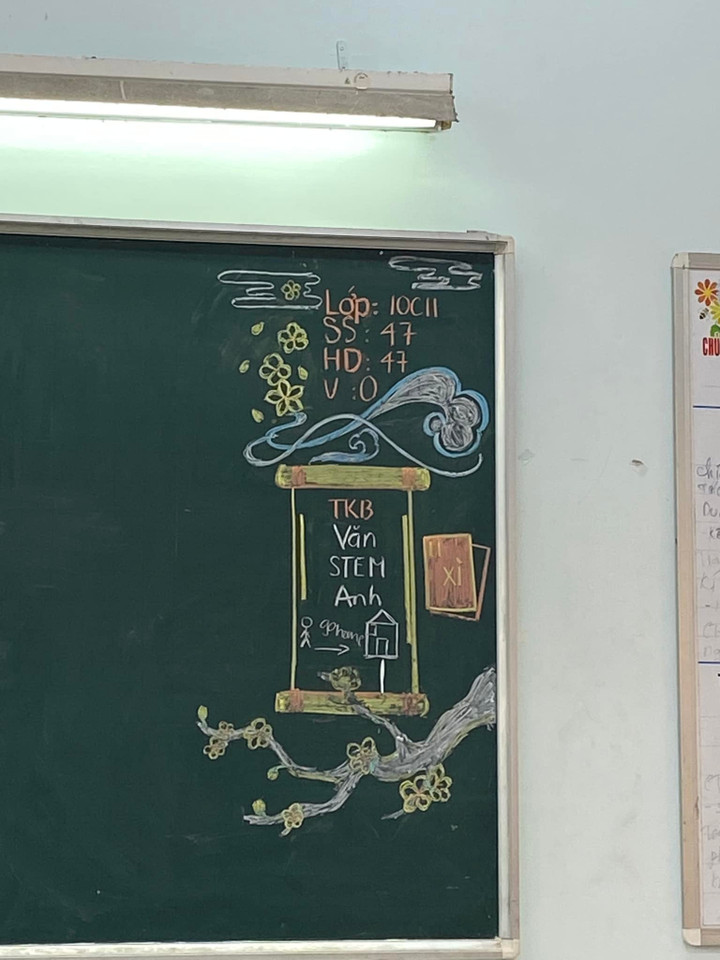 Lớp: 10C11
SS: 47
HD: 47
V: 0
TKB
Văn
STEM
Anh
go home
XÌ